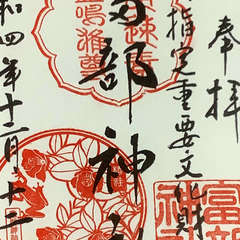 奉拝
指定重要文化財
富部神社
和四年十二月十二
富部
神社